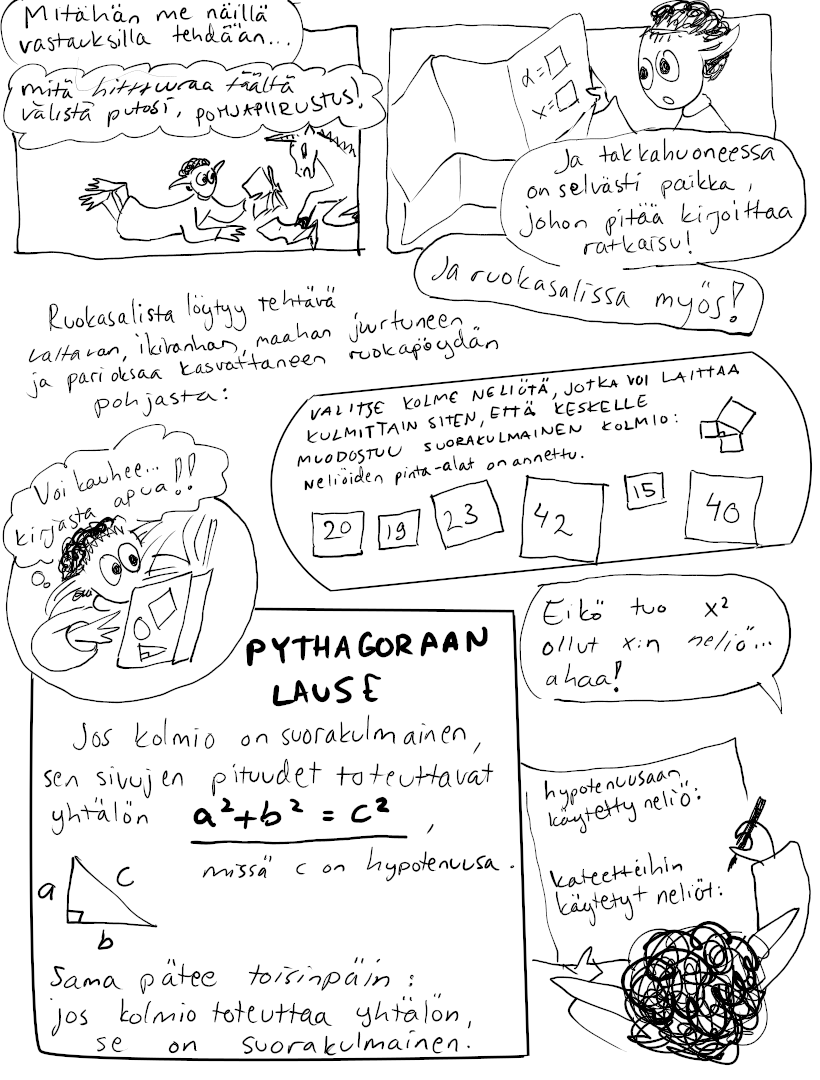 Mitähän me näillä
vastauksilla tehdään...
mitä hittturaa täältä
välistä putosi, POHJAPIIRUSTUS!
α=
x=
Ja takkahuoneessa
on selvästi paikka,
johon pitää kirjoittaa
ratkaisu!
Ja ruokasalissa myös!
Ruokasalista löytyy tehtävä
valtavan, ikivanhan, maahan juurtuneen
ja pari oksaa kasvattaneen ruokapöydän
pohjasta:
VALITSE KOLME NELIÖTÄ, JOTKA VOI LAITTAA
KULMITTAIN SITEN, ETTÄ KESKELLE
MUODOSTUU SUORAKULMAINEN KOLMIO:
Neliöiden pinta-alat on annettu.
20 19 23 42 15 40
Voi kauhee...
kirjasta apua!!
Eikö tuo x²
ollut x:n neliö...
ahaa!
PYTHAGORAAN
LAUSE
Jos kolmio on suorakulmainen,
sen sivujen pituudet toteuttavat
yhtälön a²+b² = c²,
missä c on hypotenuusa.
a c
b
Sama pätee toisinpäin:
jos kolmio toteuttaa yhtälön,
se on suorakulmainen.
hypotenuusaan
käytetty neliö:
kateetteihin
käytetyt neliöt: